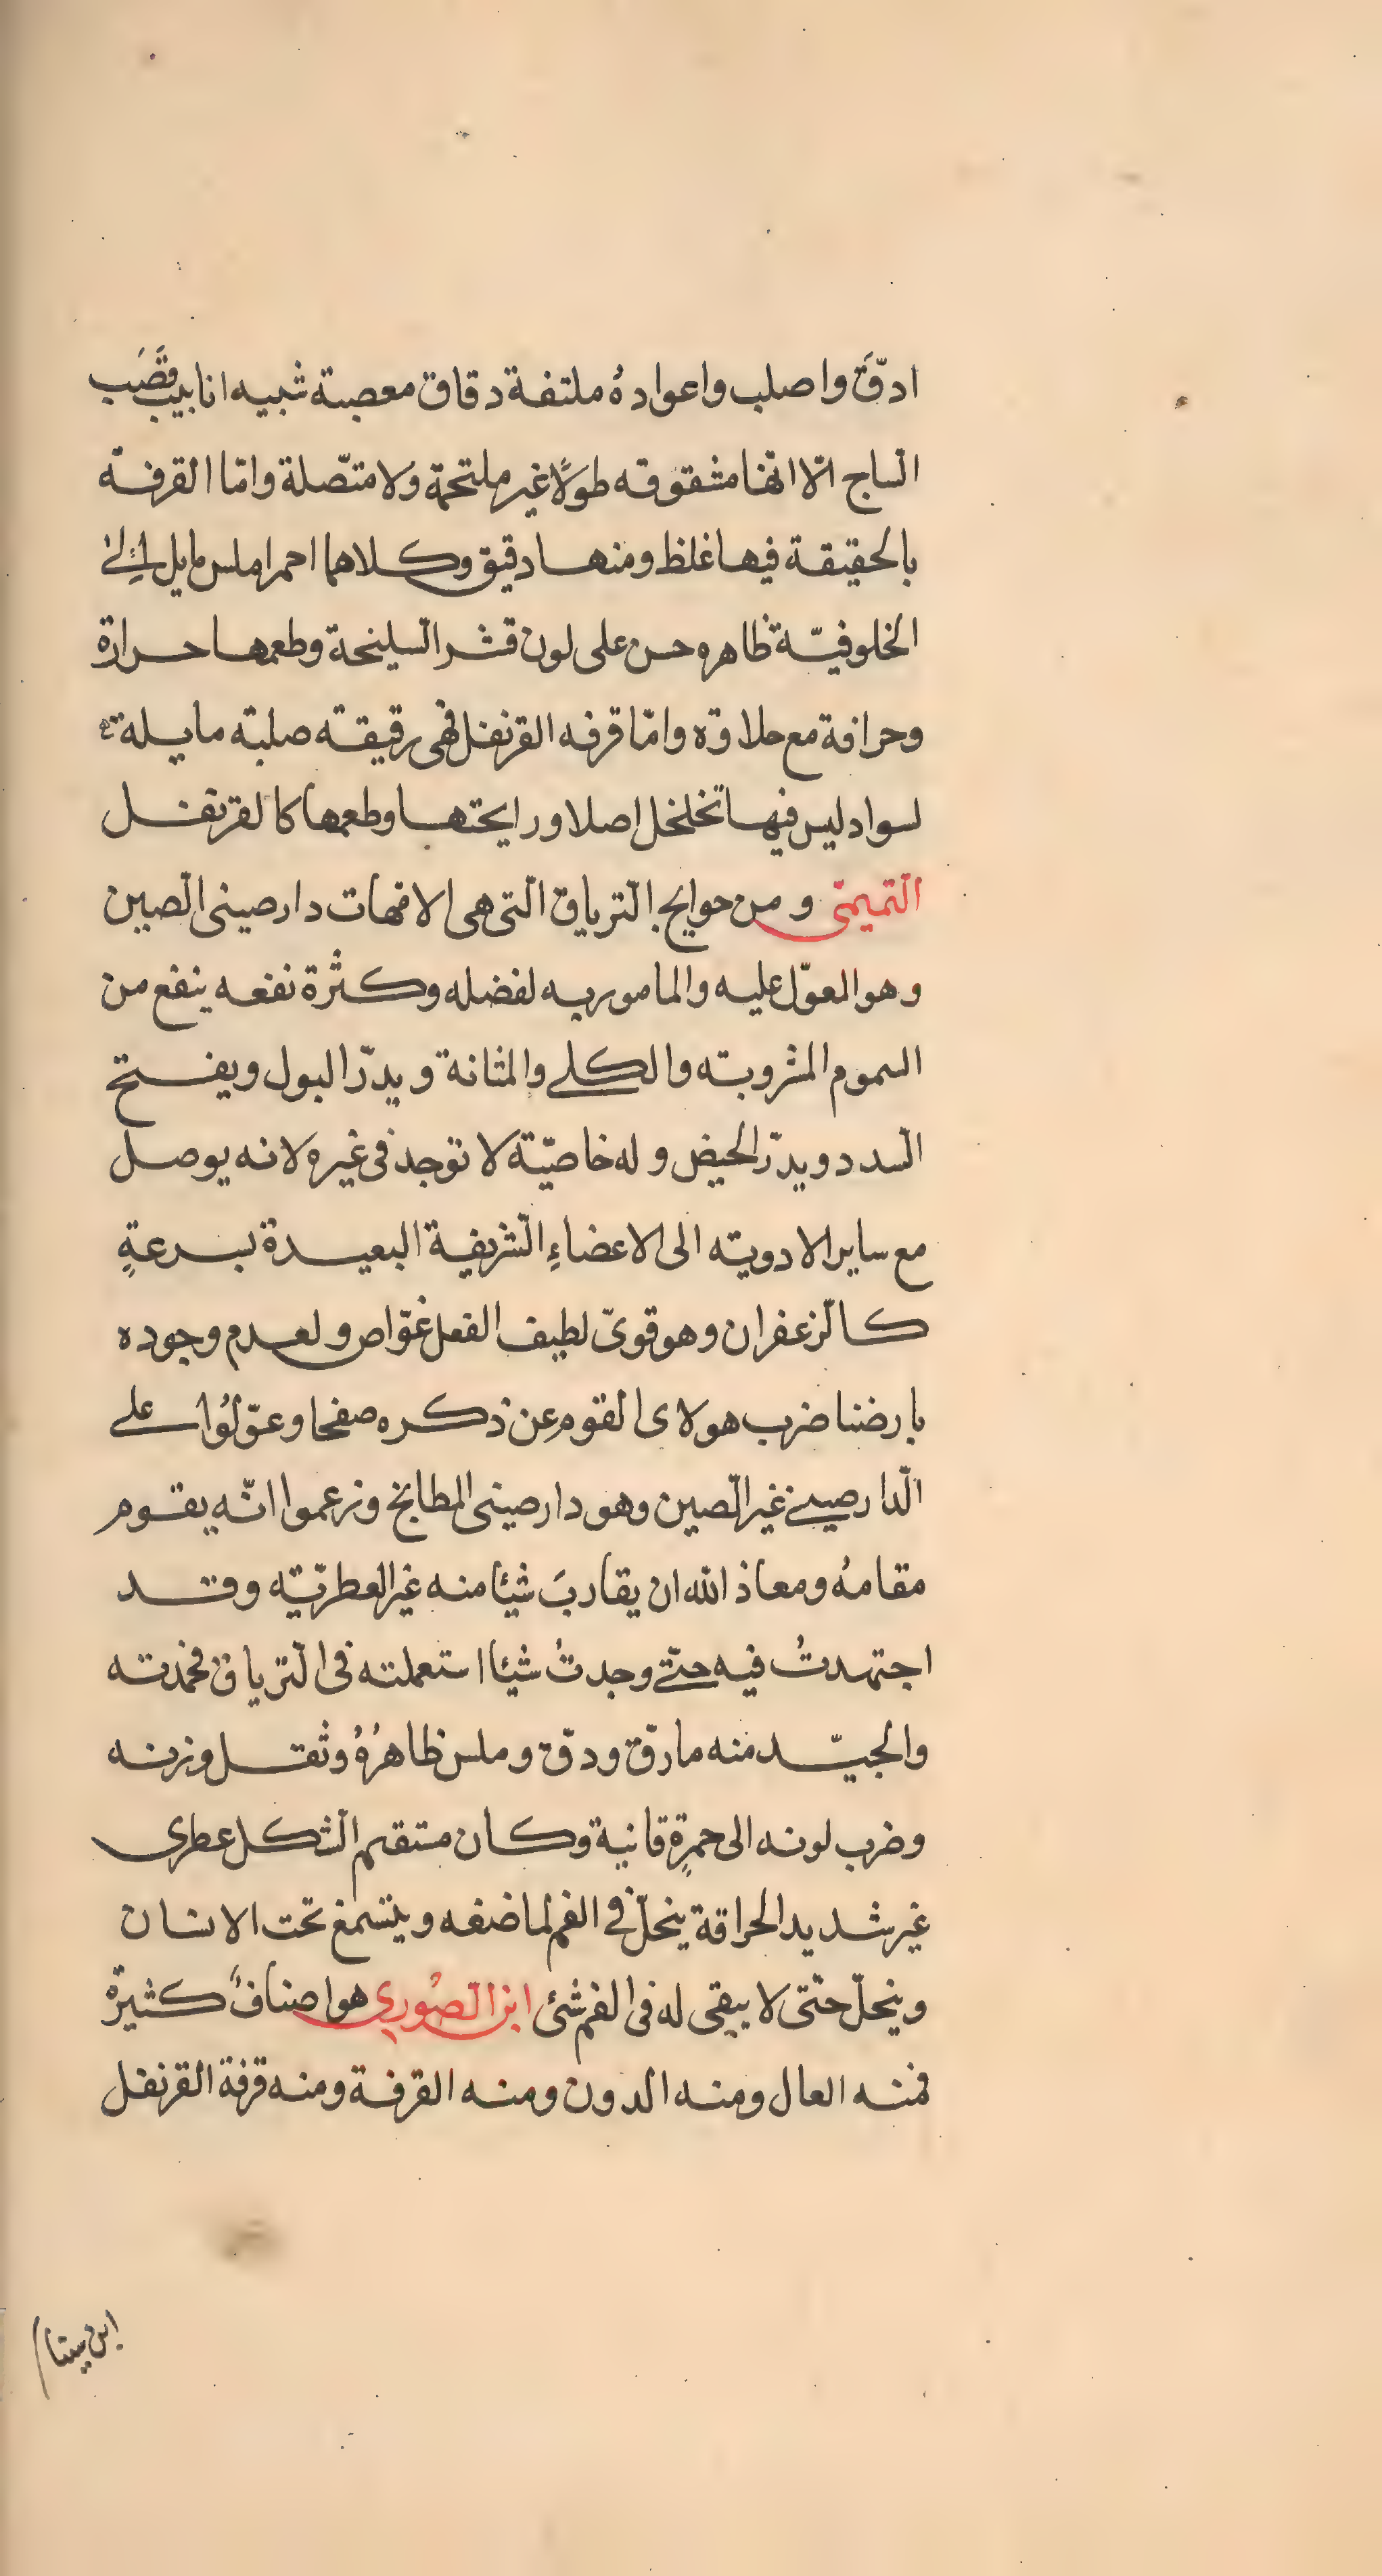 ادّقّ واصلب واعوادهُ ملتفة دقاق معصبة شبيه انابيب قصَب
الساج الّا انّها مشقوقه طولاً غير ملتحمة ولا متّصلة وامّا القرفة
بالحقيقة فيها غلظ ومنها دقيق وكلاهما احمر املس مايل الى
الخلوفيّة ظاهره حسن على لون قشر السليخة وطعمها حرارة
وحرافة مع حلاوة وامّا قرفه القرنفل فهى رقيقة صلبة مايلة
لسواد ليس فيها تخلخل اصلا ورايحتها وطعمها كالقرنفل
التميمى ومن حوايج الترياق التى هى الامّهات دارصينى الصين
وهو المعوّل عليه والمامور به لفضله وكثرة نفعه ينفع من
السموم المشروبة والكلى والمثانة ويدرّ البول ويفتح
السدد ويدرّ الحيض وله خاصّيّة لا توجد فى غيره لانه يوصل
مع ساير الادوية الى الاعضاءِ الشريفة البعيدة بسرعةٍ
كالزعفران وهو قوىّ لطيف الفعل غوّاص ولعدم وجوده
بارضنا ضرب هولاى القوم عن ذكره صفحا وعوّلُوا على
الدارصينى غير الصين وهو دارصينى المطابخ وزعموا انّه يقوم
مقامهُ ومعاذ الله ان يقاربَ شيئا منه غير العطريّة وقد
اجتهدتُ فيه حتّى وجدتُ شيئا استعملته فى الترياق فحمدته
والجيّد منه مارقّ ودقّ وملس ظاهرُهُ وثقل وزنه
وضرب لونه الى حمرةٍ قانية وكان مستقيم الشكل عطرى
غير شديد الحراقة ينحلّ فى الفم لماضغه ويتسمغ تحت الاسنان
وينحلّ حتّى لا يبقى له فى الفم شئ ابن الصُورى هو اصنافٌ كثيرة
فمنه العال ومنه الدون ومنه القرفة ومنه قرفة القرنفل
ابن سينا